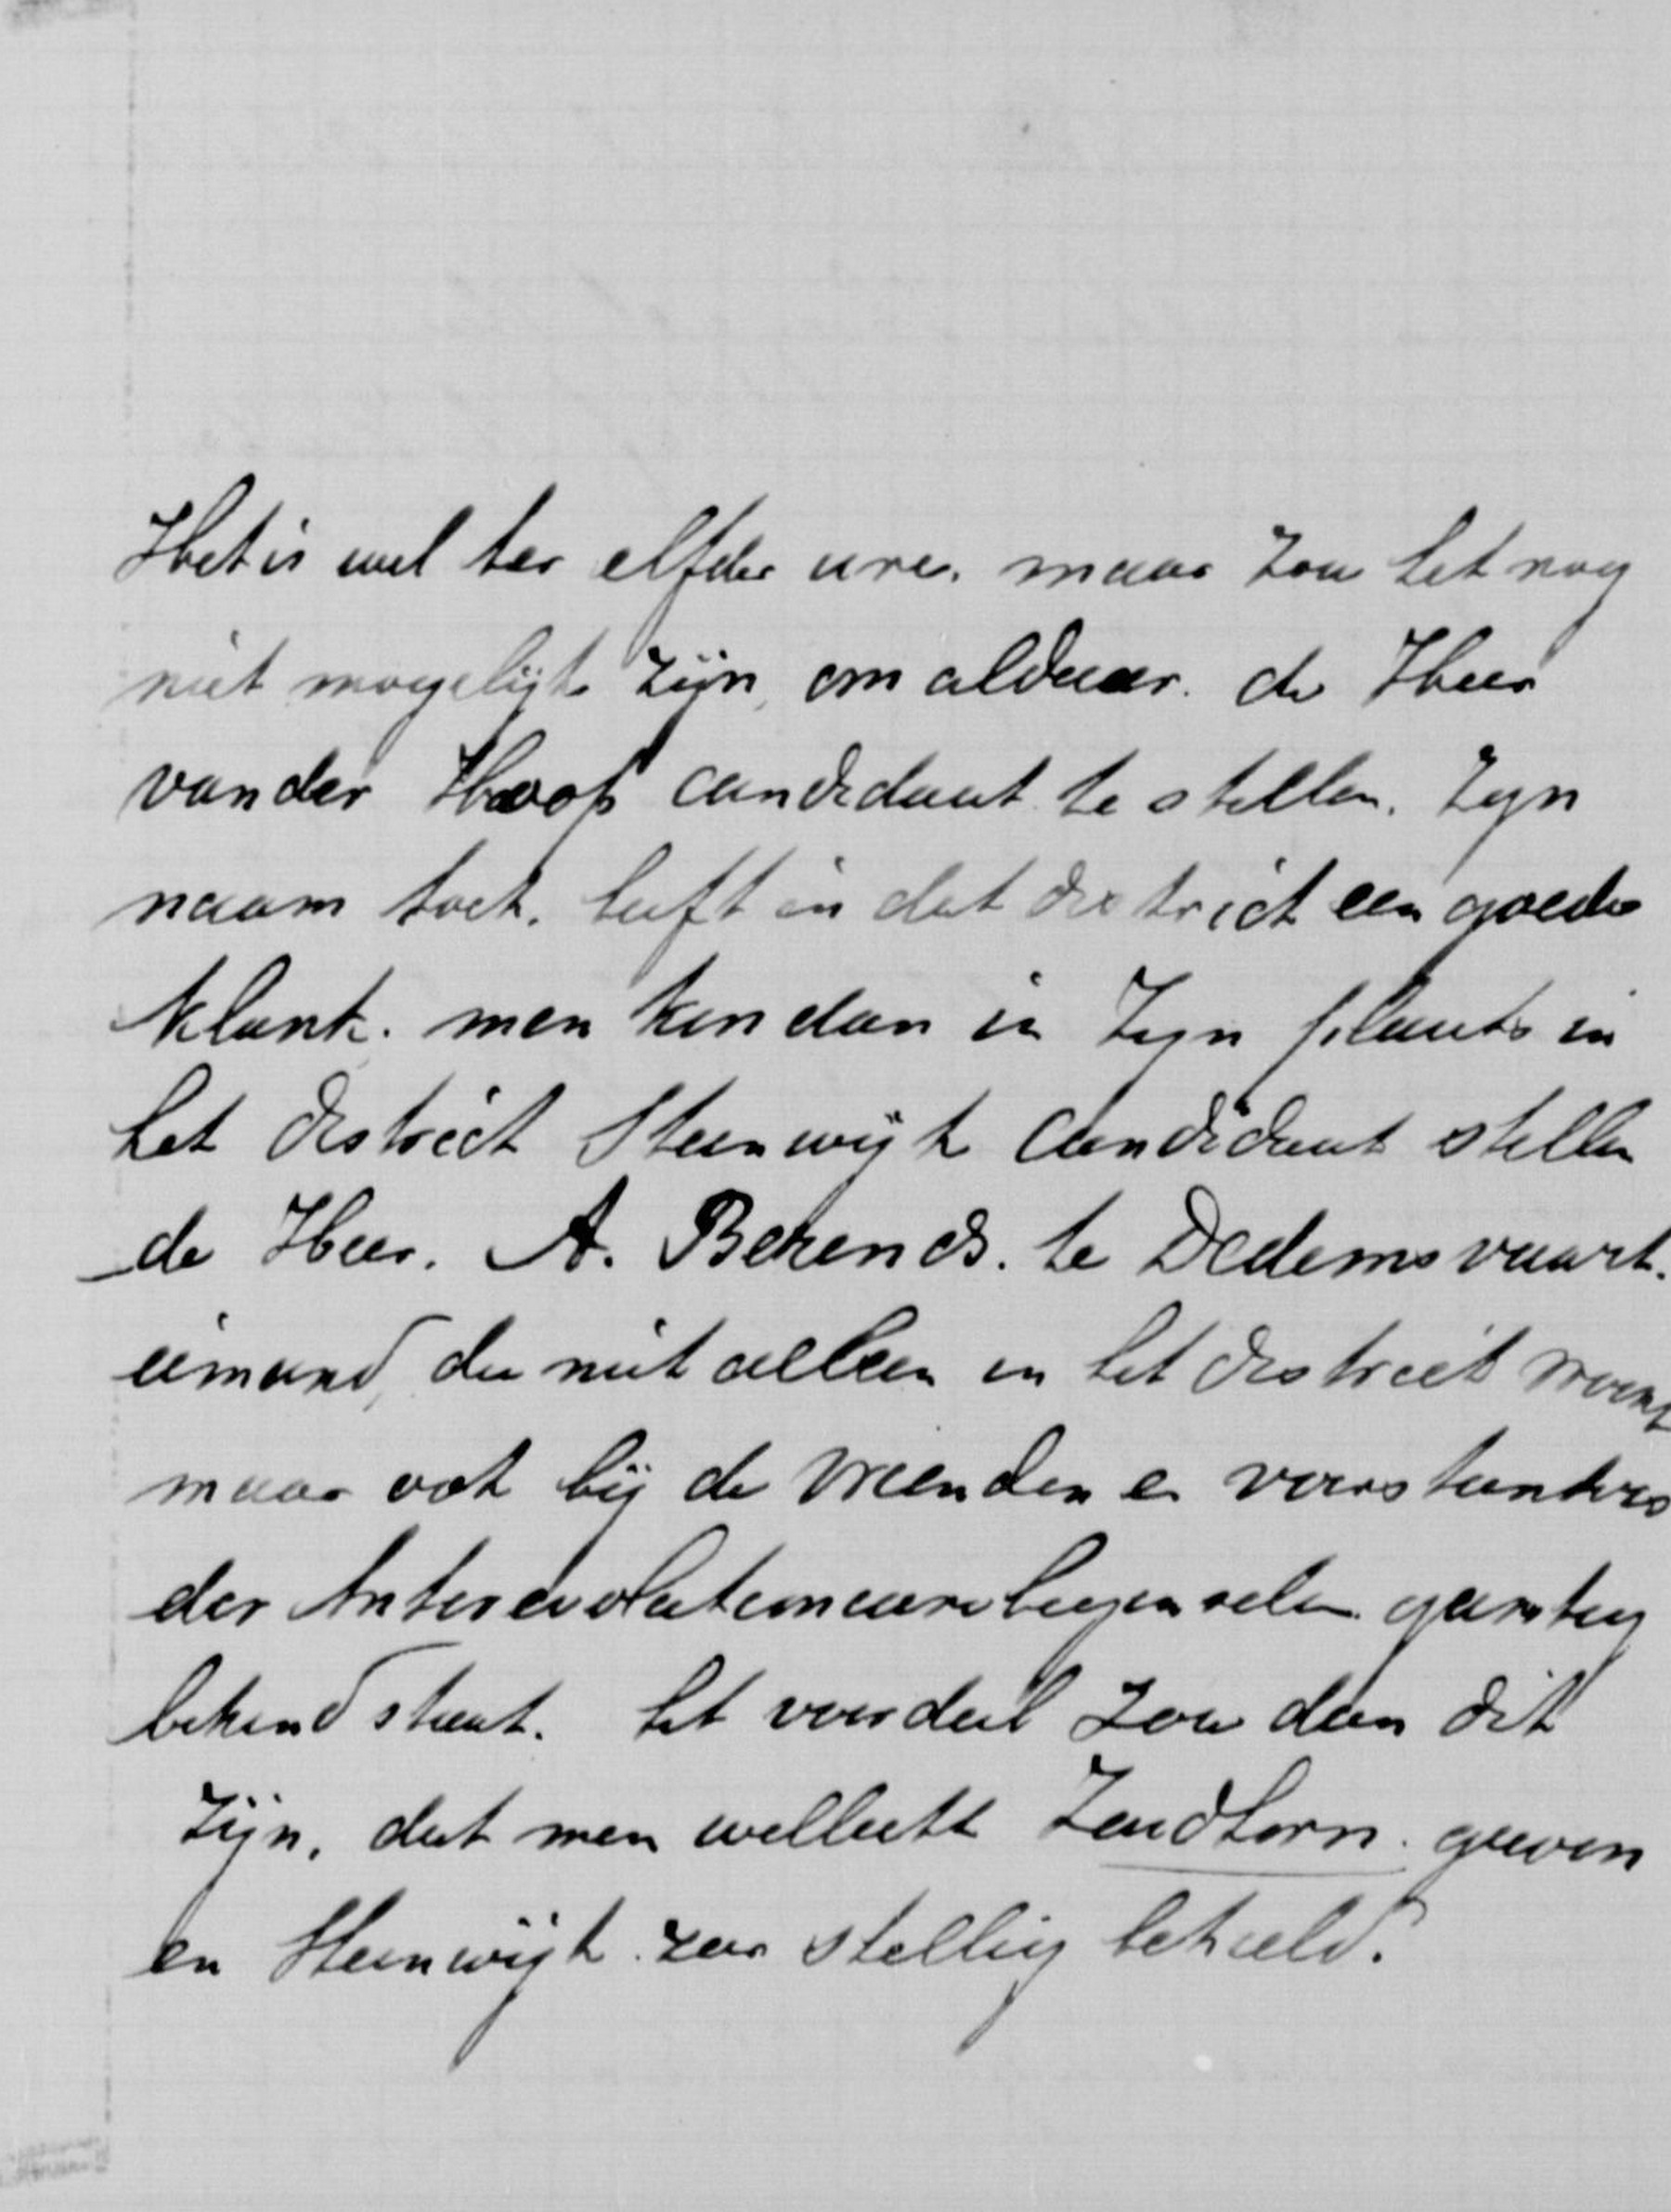 Het is wel ter elfder ure. maar zou het nog
niet mogelijk zijn, om aldaar. de Heer
van der Hoop candidaat te stellen. Zyn
naam toch. heeft in dat district een goede
klank. men kan dan in Zyn plaats in
het district Steenwijk Candidaat stellen
de Heer. A. Berends. te Dedemsvaart.
iemand, die niet alleen in het district woont
maar ook bij de vrienden en voorstanders
der Antirevolutionaire beginselen gunstig
bekend staat. het voordeel zou dan dit
Zijn, dat men wellicht Zendhorn. 
en Steenwijk. zeer stellig behield.